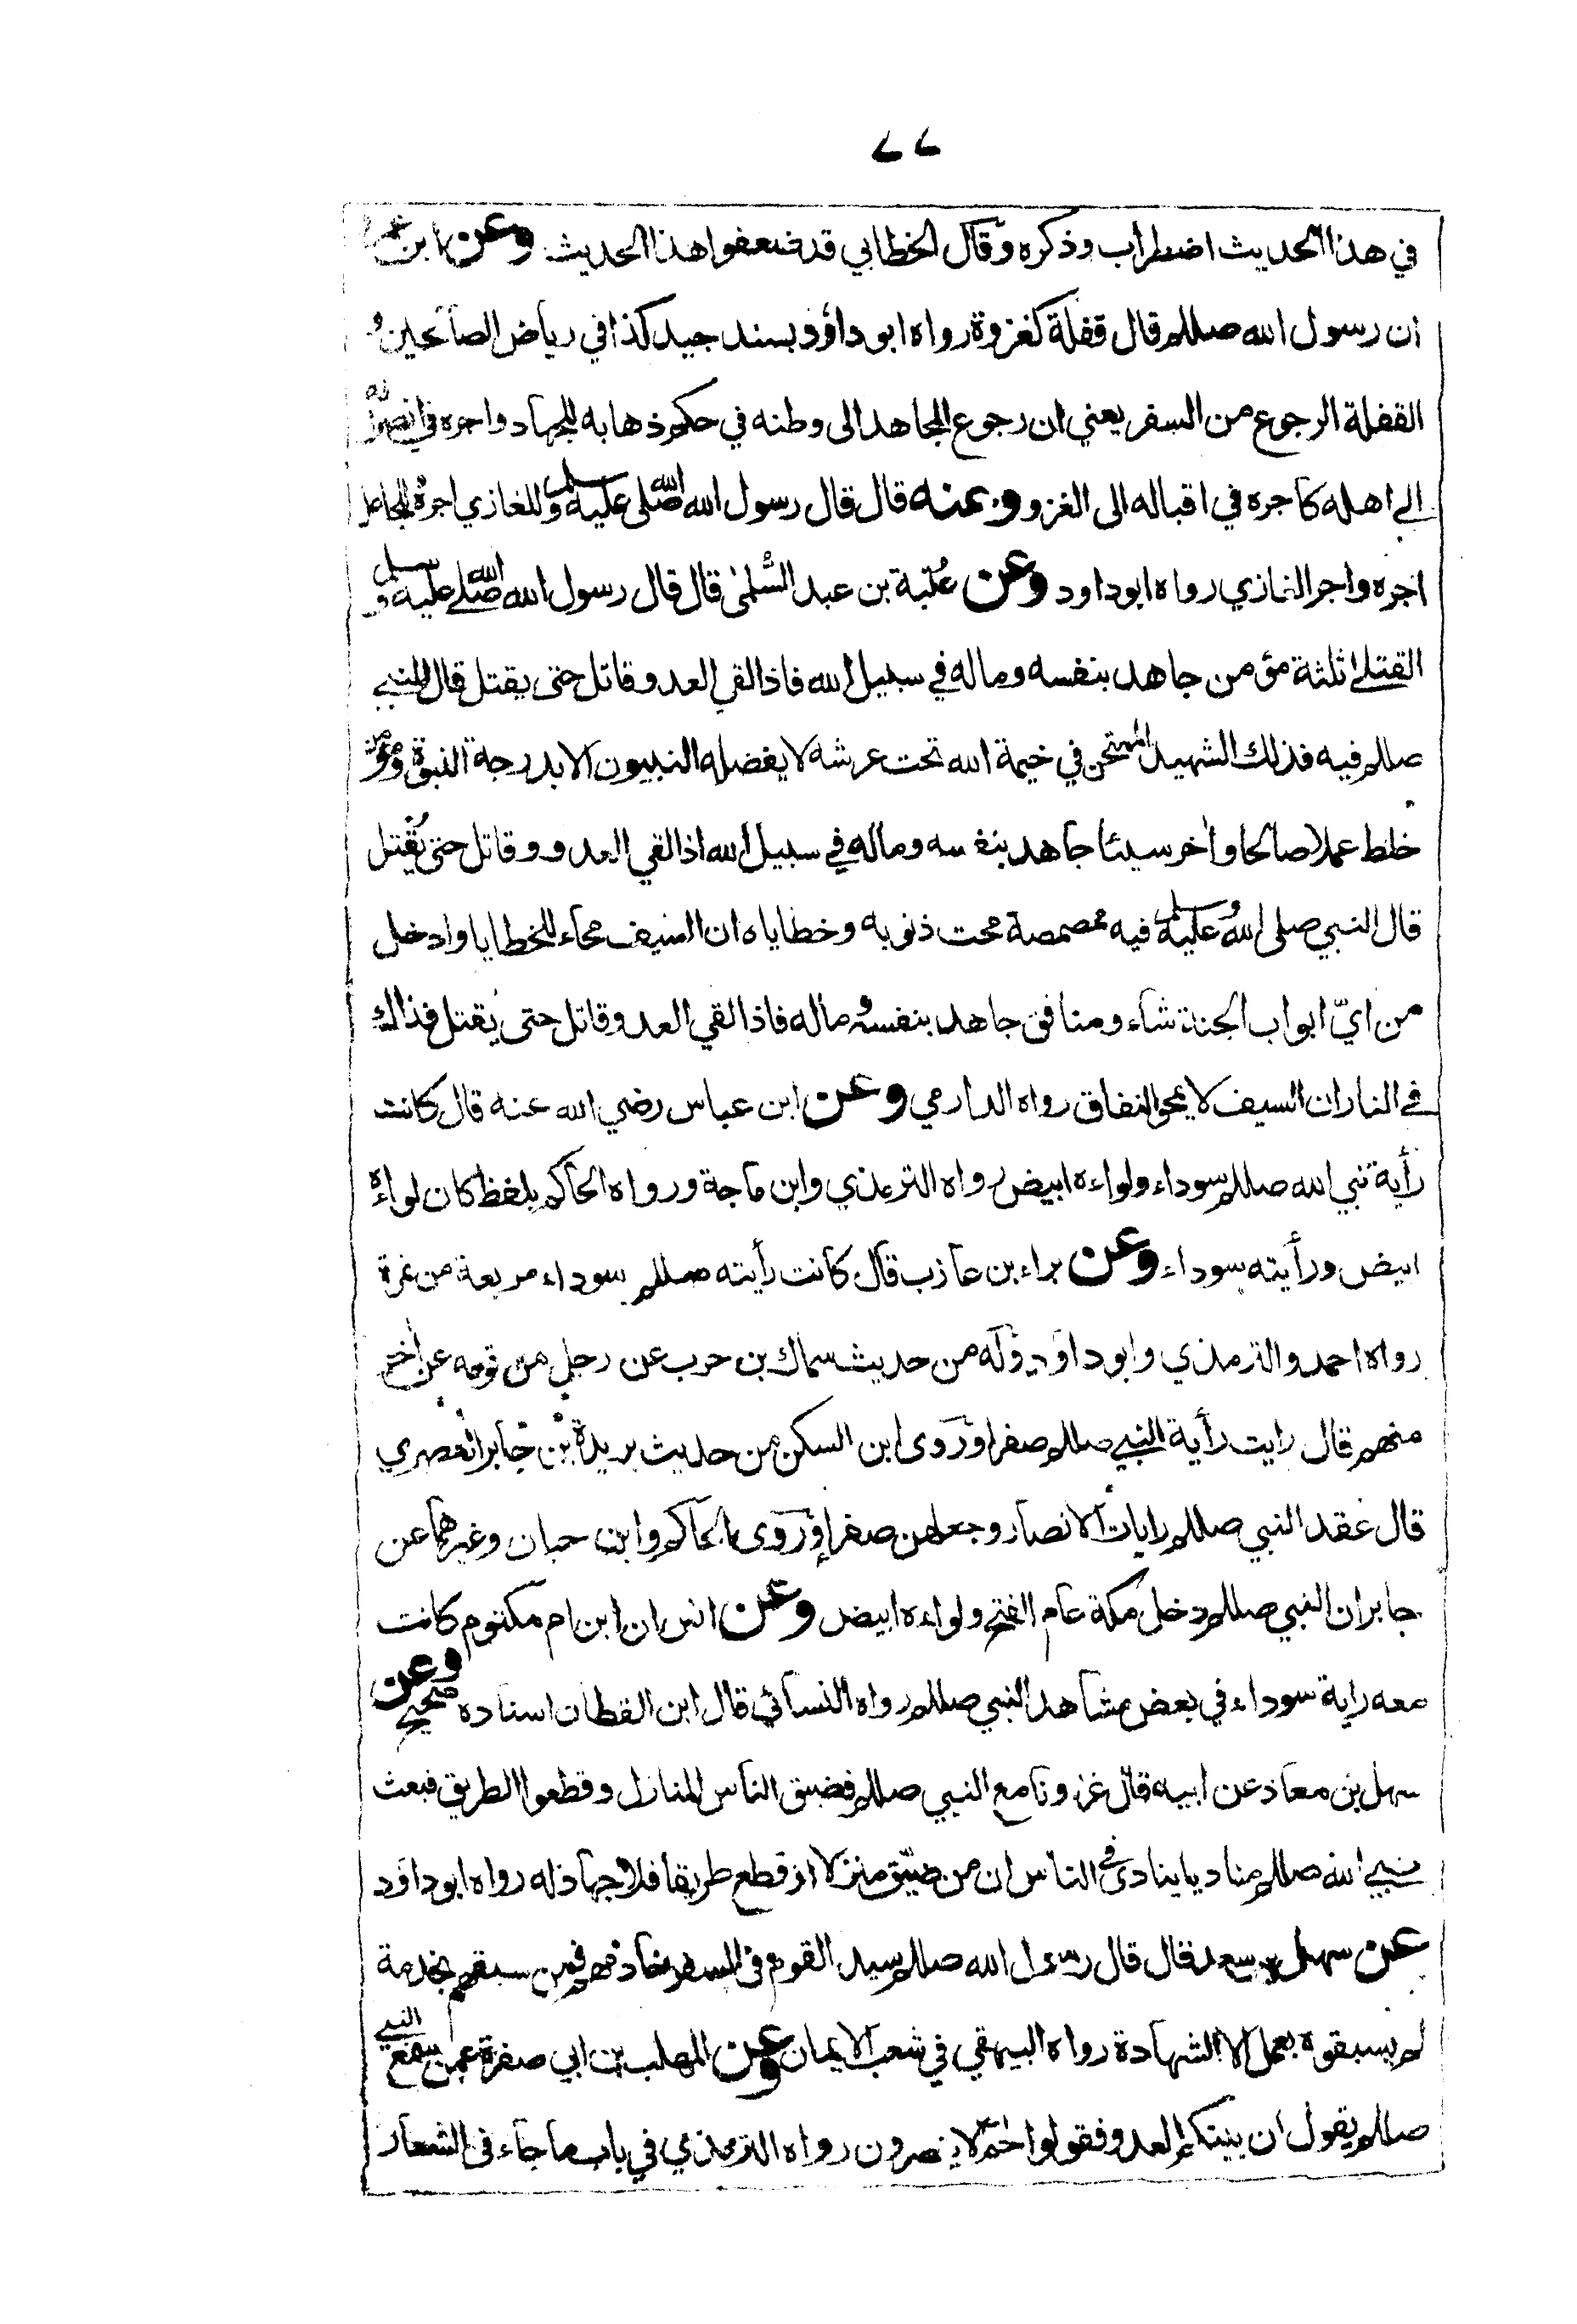 ٧٧
في هذا الحديث اضطراب وذكره وقال الخطابي قد ضعفوا هذا الحديث وعن ابن عمر
ان رسول الله صللم قال قفلة كغزوة رواه ابو داؤد بسند جيد كذا في رياض الصالحين و
القفلة الرجوع من السفر يعني ان رجوع المجاهد الى وطنه في حكم ذهابه للجهاد واجره في انصرافه
الى اهله كاجره في اقباله الى الغزو وعنه قال قال رسول الله صلى الله عليه وسلم للغازي اجره وللجاعل
اجره واجر الغازي رواه ابو داود وعن عتبة بن عبد السُّلمى قال قال رسول الله صلى الله عليه وسلم
القتلى ثلثة مؤمن جاهد بنفسه وماله في سبيل الله فاذا لقي العدو قاتل حتى يقتل قال النبي
صللم فيه فذلك الشهيد الممتحن في خيمة الله تحت عرشه لا يفضله النبيون الا بدرجة النبوة ومؤمن
خلط عملا صالحا وأخر سيئا جاهد بنفسه وماله في سبيل الله اذا لقي العدو وقاتل حتى يُقتل
قال النبي صلى الله عليه وسلم فيه ممصمصة محت ذنوبه وخطاياه ان السيف محاء للخطايا وادخل
من ايّ ابواب الجنة شاء ومنافق جاهد بنفسه وماله فاذا لقي العدو قاتل حتى يُقتل فذاك
في النار ان السيف لا يمحو النفاق رواه الدارمي وعن ابن عباس رضي الله عنه قال كانت
رأية نبي الله صللم سوداء ولواءه ابيض رواه الترمذي وابن ماجة ورواه الحاكم بلفظ كان لواءه
ابيض ورأيته سوداء وعن براء بن عازب قال كانت رأيته صللم سوداء مربعة من نمرة
رواه احمد والترمذي وابو داؤد وله من حديث سماك بن حرب عن رجل من قومه عن أخر
منهم قال رايت رأية النبي صللم صفرا وروى ابن السكن من حديث بريدة بن جابر العصري
قال عقد النبي صللم رايات الانصار وجعلهن صفرا وروى الحاكم وابن حبان وغيرهما عن
جابر ان النبي صللم دخل مكة عام الفتح ولواءه ابيض وعن انس ان ابن ام مكتوم كانت
معه راية سوداء في بعض مشاهد النبي صللم رواه النسائي قال ابن القطان اسناده صحيح وعن
سهل بن معاذ عن ابيه قال غزونا مع النبي صللم فضيق الناس المنازل وقطعوا الطريق فبعث
نبي الله صللم مناديا ينادى في الناس ان من ضيّق منزلا او قطع طريقا فلا جهاد له رواه ابو داؤد
عن سهل بن سعد قال قال رسول الله صللم سيد القوم في السفر خادمهم فمن سبقهم بخدمة
لم يسبقوه بعمل الا الشهادة رواه البيهقي في شعب الايمان وعن المهلب بن ابي صفرة عمن سمع النبي
صللم يقول ان بيتكم العدو فقولوا حم لا ينصرون رواه الترمذي في باب ما جاء فى الشعار